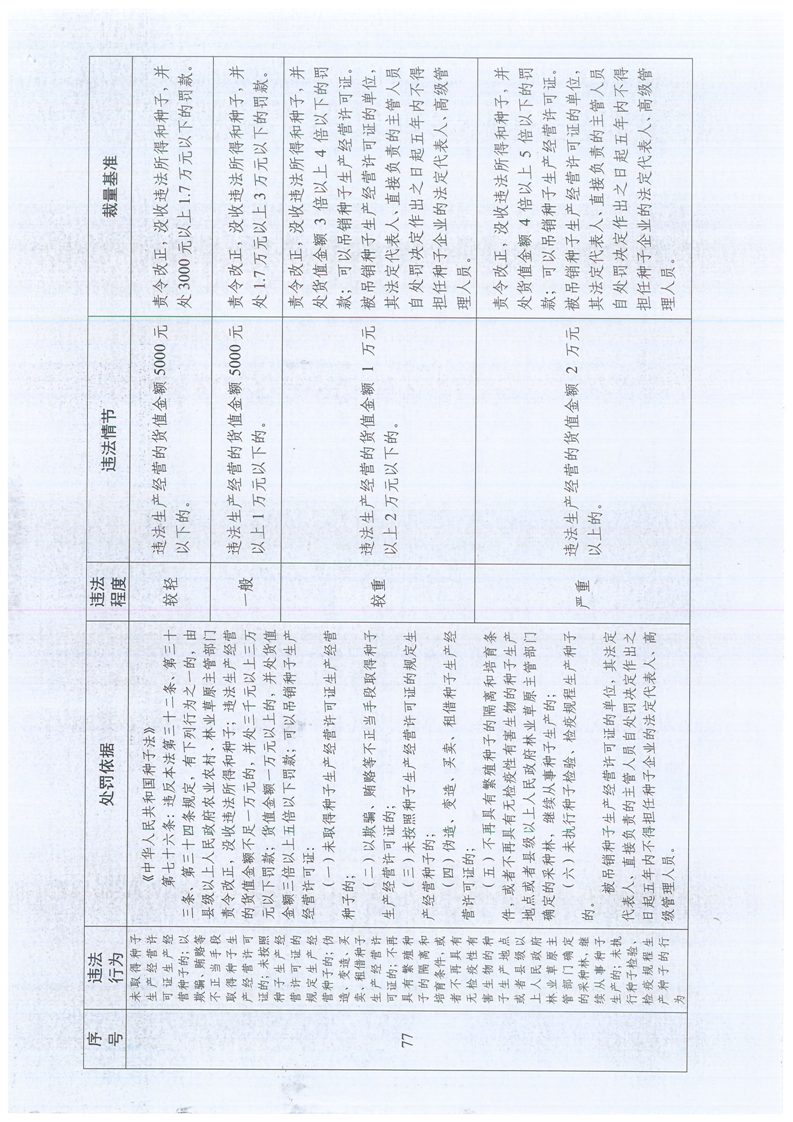 序
号
违法
行为
处罚依据
违法
程度
违法情节
裁量基准
77
未取得种子
生产经营许
可证生产经
营种子的；以
欺骗、贿赂等
不正当手段
取得种子生
产经营许可
证的；未按照
种子生产经
营许可证的
规定生产经
营种子的；伪
造、变造、买
卖、租借种子
生产经营许
可证的；不再
具有繁殖种
子的隔离和
培育条件，或
者不再具有
无检疫性有
害生物的种
子生产地点
或者县级以
上人民政府
林业草原主
管部门确定
的采种林，继
续从事种子
生产的；未执
行种子检验、
检疫规程生
产种子的行
为
《中华人民共和国种子法》
第七十六条：违反本法第三十二条、第三十
三条、第三十四条规定，有下列行为之一的，由
县级以上人民政府农业农村、林业草原主管部门
责令改正，没收违法所得和种子；违法生产经营
的货值金额不足一万元的，并处三千元以上三万
元以下罚款；货值金额一万元以上的，并处货值
金额三倍以上五倍以下罚款；可以吊销种子生产
经营许可证：
（一）未取得种子生产经营许可证生产经营
种子的；
（二）以欺骗、贿赂等不正当手段取得种子
生产经营许可证的；
（三）未按照种子生产经营许可证的规定生
产经营种子的；
（四）伪造、变造、买卖、租借种子生产经
营许可证的；
（五）不再具有繁殖种子的隔离和培育条
件，或者不再具有无检疫性有害生物的种子生产
地点或者县级以上人民政府林业草原主管部门
确定的采种林，继续从事种子生产的；
（六）未执行种子检验、检疫规程生产种子
的。
被吊销种子生产经营许可证的单位，其法定
代表人、直接负责的主管人员自处罚决定作出之
日起五年内不得担任种子企业的法定代表人、高
级管理人员。
较轻
违法生产经营的货值金额 5000 元
以下的。
责令改正，没收违法所得和种子，并
处 3000 元以上 1.7 万元以下的罚款。
一般
违法生产经营的货值金额 5000 元
以上 1 万元以下的。
责令改正，没收违法所得和种子，并
处 1.7 万元以上 3 万元以下的罚款。
较重
违法生产经营的货值金额 1 万元
以上 2 万元以下的。
责令改正，没收违法所得和种子，并
处货值金额 3 倍以上 4 倍以下的罚
款；可以吊销种子生产经营许可证。
被吊销种子生产经营许可证的单位，
其法定代表人、直接负责的主管人员
自处罚决定作出之日起五年内不得
担任种子企业的法定代表人、高级管
理人员。
严重
违法生产经营的货值金额 2 万元
以上的。
责令改正，没收违法所得和种子，并
处货值金额 4 倍以上 5 倍以下的罚
款；可以吊销种子生产经营许可证。
被吊销种子生产经营许可证的单位，
其法定代表人、直接负责的主管人员
自处罚决定作出之日起五年内不得
担任种子企业的法定代表人、高级管
理人员。